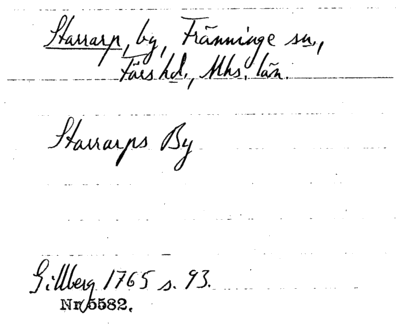 Starrarp, by, Tränninge sn.,
Färs hd., Mhs. län.
Starrarps By
Gillberg 1765 s. 93.
Nr 5582.